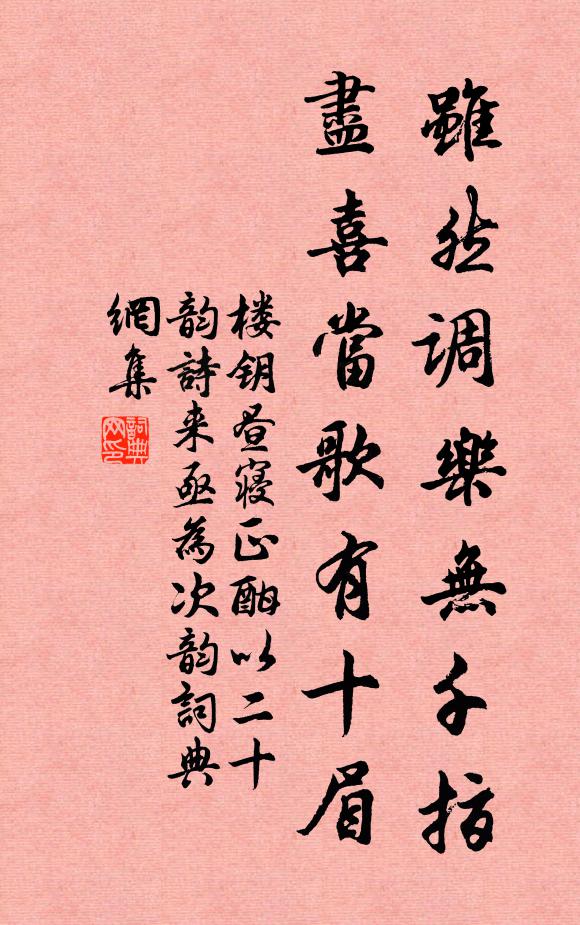 雖然調樂無千指
盡喜當歌有十眉
楼鑰昼寝正酣以二十
韵詩来亟為次韵詞典
網集
詞典
网印